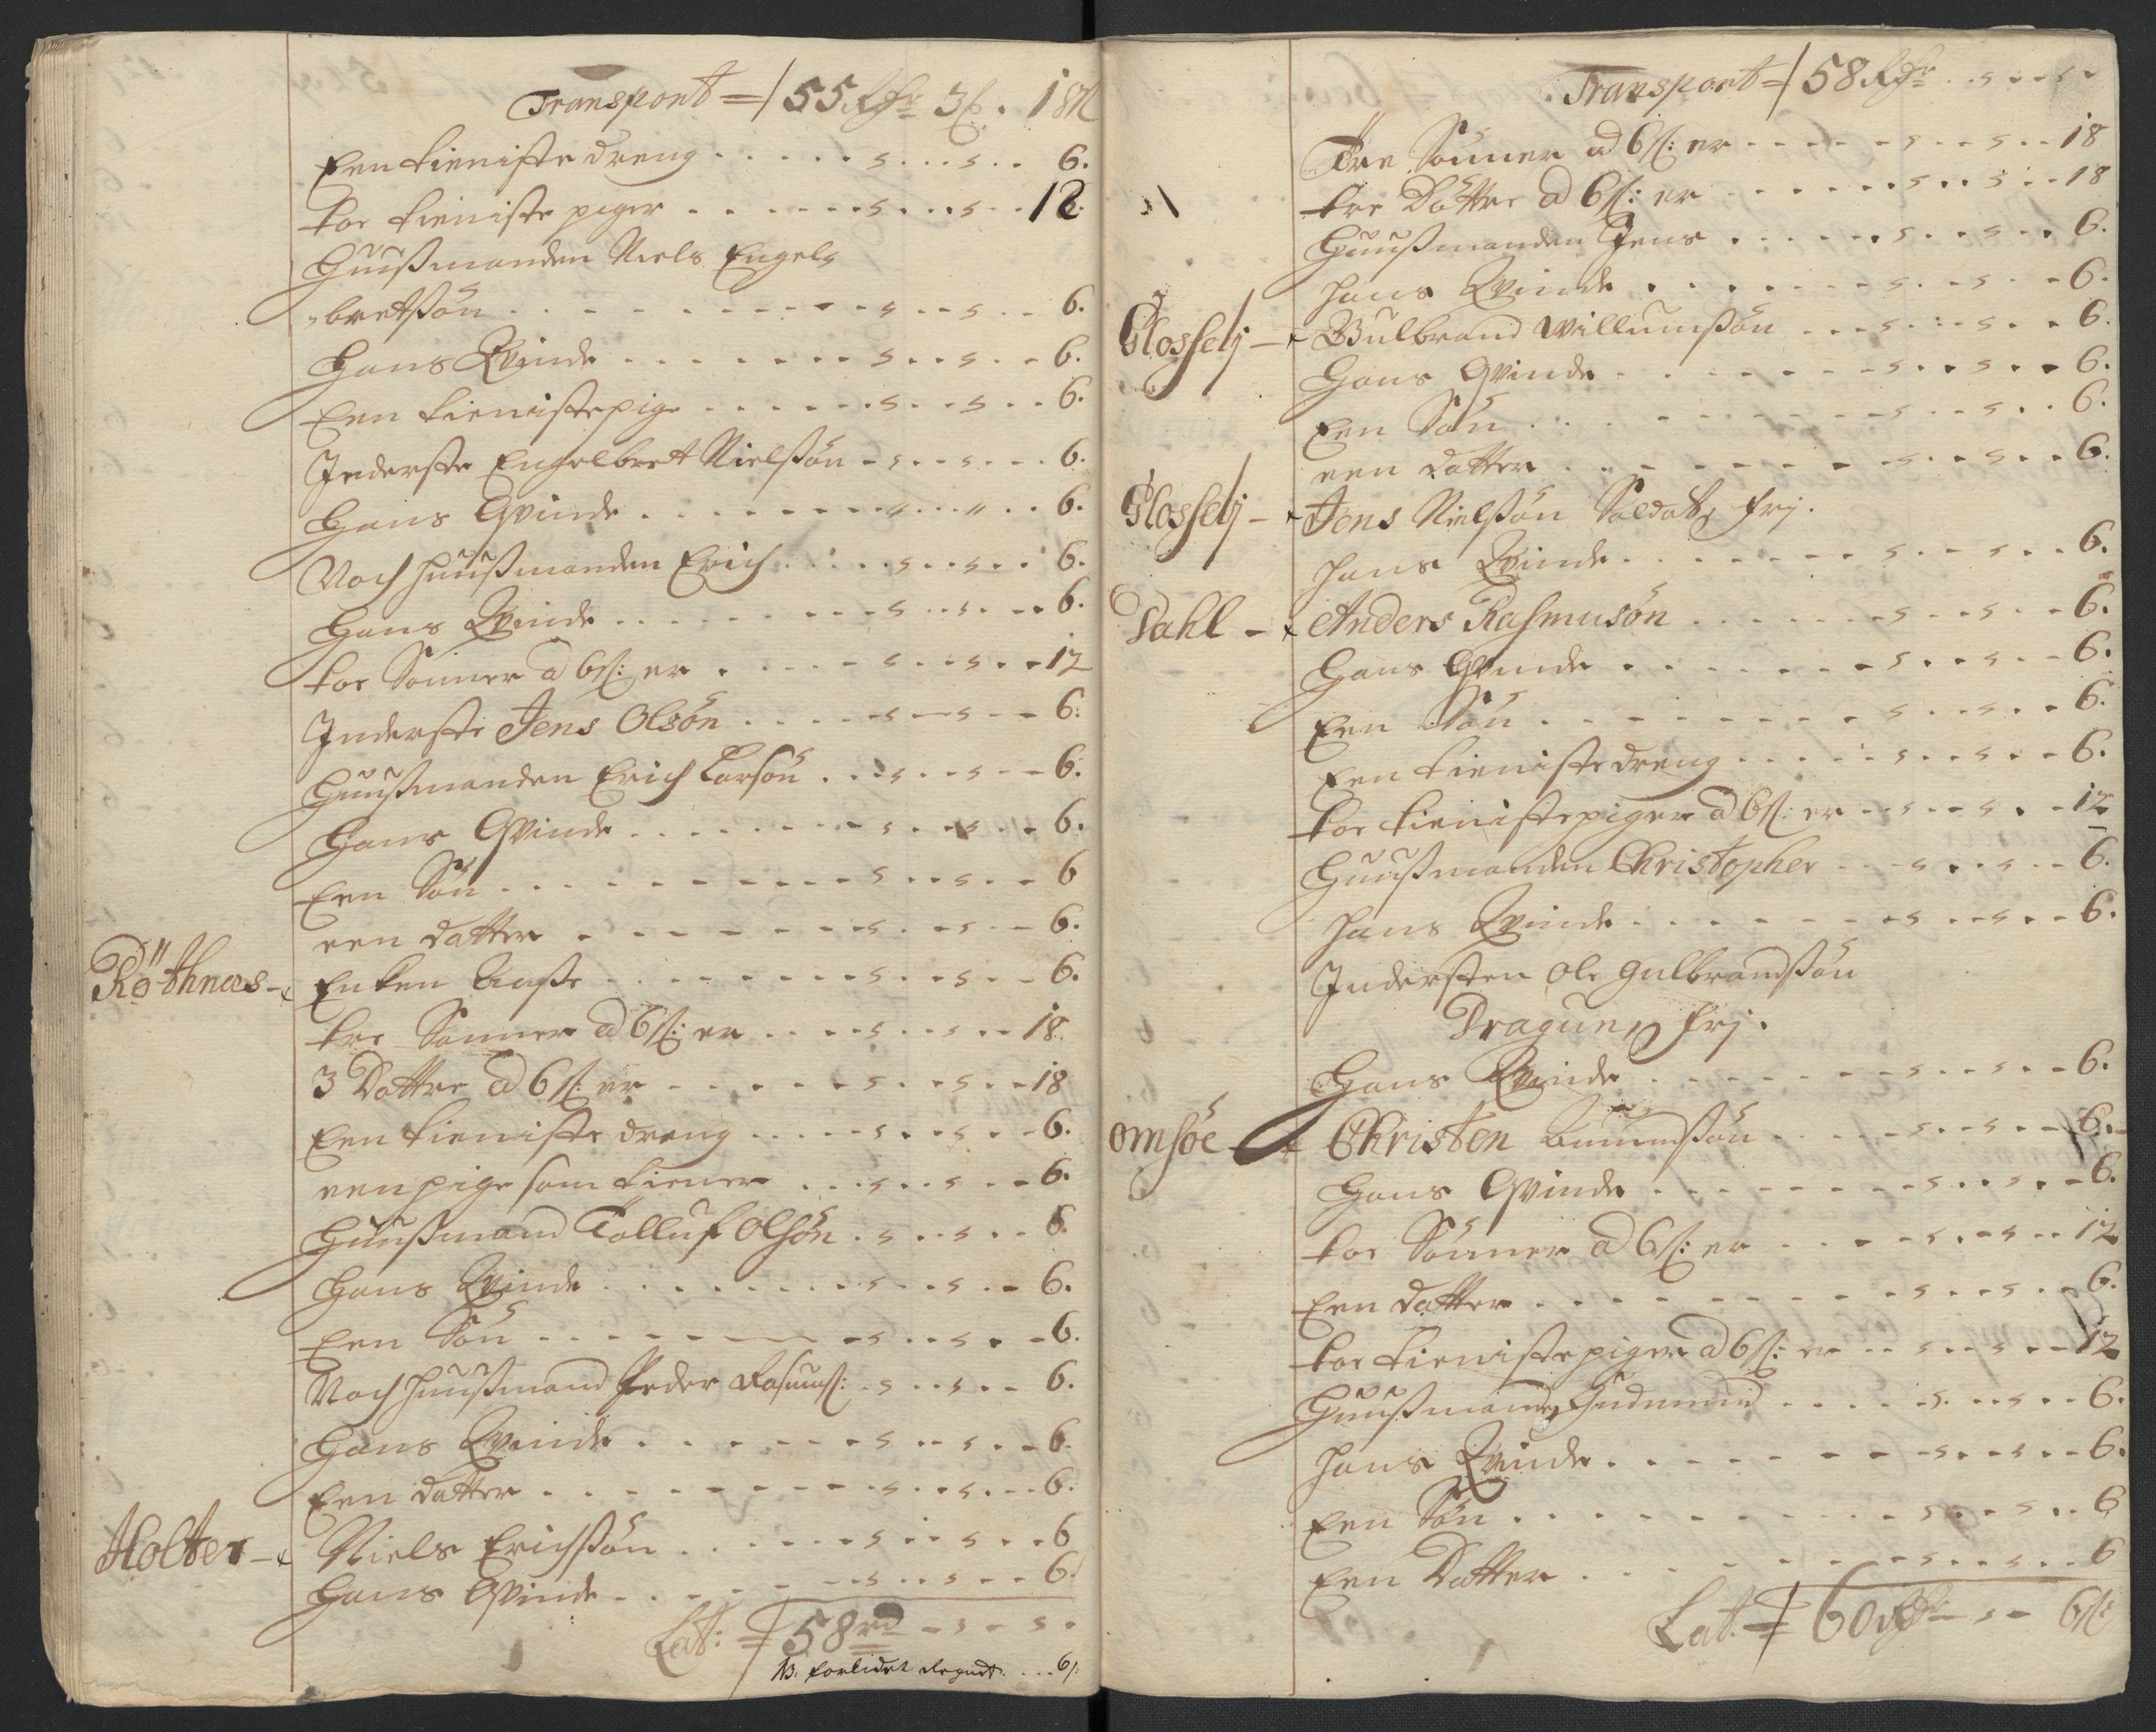 Transport = 55 Rdr 3 ß. 18
Een tieniste dreng . . . . . 6.
toe tieniste piger . . . . . 12
Huusmanden Niels Engel
bretsøn . . . . . 6.
Hans Qvinde . . . . . 6.
Een tienistepige . . . . . 6.
Inderste Engelbret Nielsøn . . . 6.
Hans Qvinde . . . . . 6.
Noch huusmanden Erich . . . . 6.
Hans Qvinde . . . . . 6.
toe Sønner a 6 ß: er . . . . . 12
Inderste Jens Olsøn . . . . . 6.
Huusmanden Erich Larsøn . . . . 6.
Hans Qvinde . . . . . 6.
Een Søn . . . . . 6
een datter . . . . . 6.
Röthnæs - Enken Aaste . . . . . 6.
tre Sønner a 6 ß: er . . . . . 18.
3 Døttre a 6 ß: er . . . . . 18
Een tieniste dreng . . . . . 6.
een pige som tiener . . . . . 6.
Huusmand Tolluf Olsøn . . . . 6.
Hans Qvinde . . . . . 6.
Een Søn . . . . . 6.
Noch huusmand Peder Rasmuß: . . . 6.
Hans Qvinde . . . . . 6.
Een datter . . . . . 6.
Holter - Niels Erichsøn . . . . . 6
Hans Qvinde . . . . . 6.
Lat: = 58 rd
forlidet 6 ß
Transport = 58 Rdr
Tre Sønner ad 6 ß: er . . . . . 18
tre Døttre a 6 ß: er . . . . . 18
Huusmanden Jens . . . . . 6.
hans Qvinde . . . . . 6.
Flosselj - Gulbrand Willumsøn . . . . 6.
Hans Qvinde . . . . . 6.
Een Søn . . . . . 6.
een datter . . . . . 6.
Flosselj - Jens Nielsøn Soldat, frj.
hans Qvinde . . . . . 6.
Dahl - Anders Rasmusøn . . . . . 6.
Hans Qvinde . . . . . 6.
Een Søn . . . . . 6.
Een tieniste dreng . . . . . 6.
toe tienistepiger a 6 ß: er . . . . 12
Huusmanden Christopher . . . . 6.
hans Qvinde . . . . . 6.
Indersten Ole Gulbrandsøn
Dragun, frj.
Hans Qvinde . . . . . 6.
omsöe - Christen . . . . . 6.
Hans Qvinde . . . . . 6.
toe Sønner a 6 ß: er . . . . . 12
Een datter . . . . . 6.
toe tienistepiger a 6 ß: er . . . . 12
Huusmand Gudmund . . . . . 6.
hans Qvinde . . . . . 6.
Een Søn . . . . . 6
Een Datter . . . . . 6
Lat. = 60 Rdr - - 6 ß